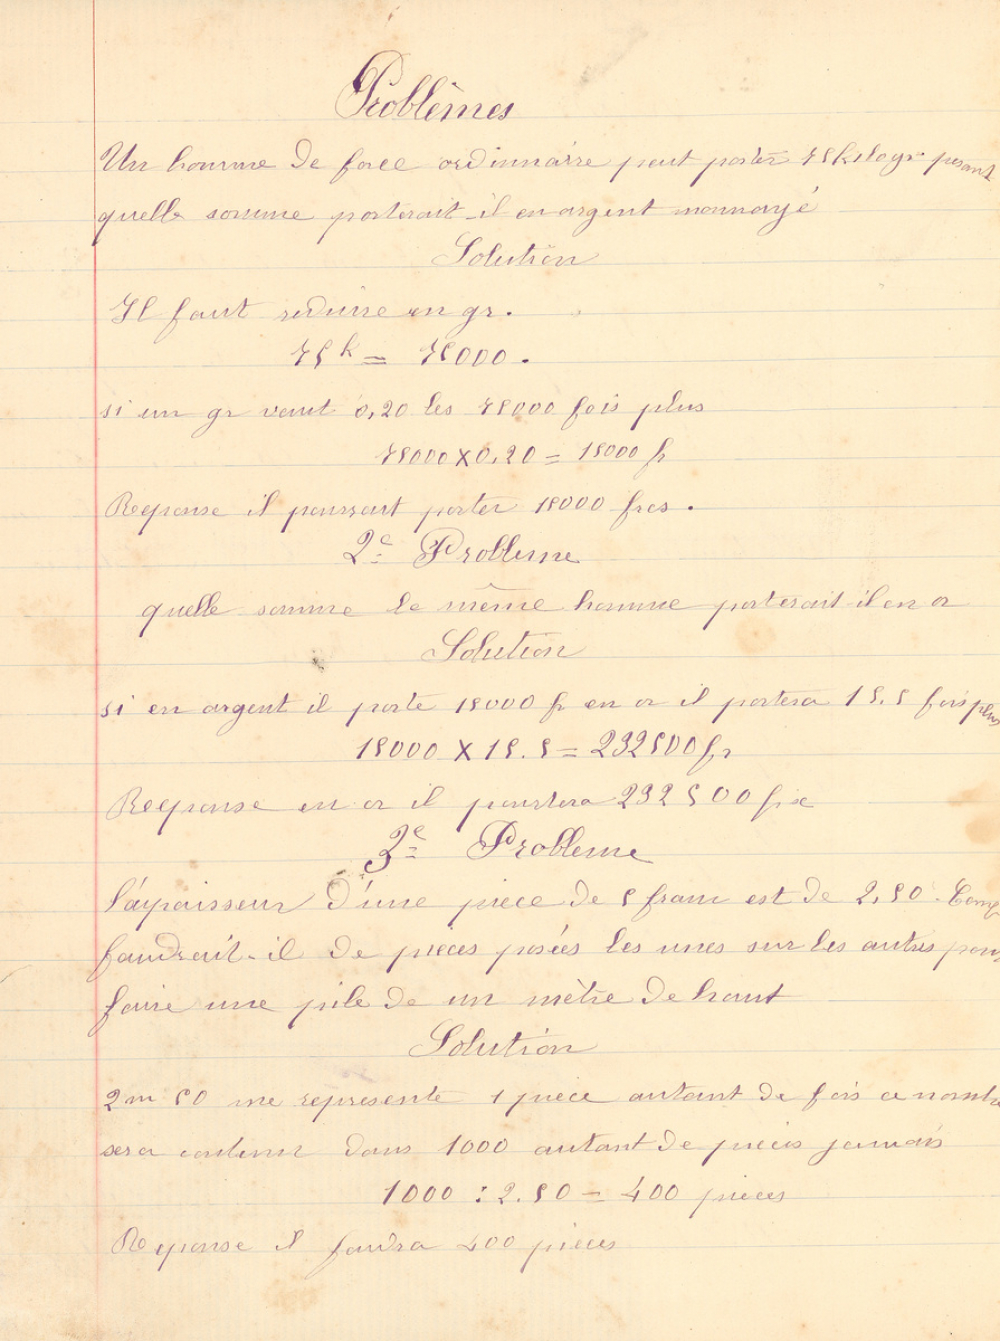 Problêmes
Un homme de force ordinnaire peut porter 75 kilogr pesant
quelle somme porterait-il en argent monnayé
Solution
Il faut reduire en gr.
75 k = 75000.
si un gr vaut 0,20 les 75000 fois plus
75000 X 0,20 = 15000 fr
Reponse il pourrait porter 15000 frcs.
2e Probleme
quelle somme le même homme porterait-il en or
Solution
si en argent il porte 15000 fr en or il portera 15.5 fois plus
15000 X 15.5 = 232500 fr
Reponse en or il pourtera 232500 fr
3e Probleme
l'épaisseur d'une piece de 5 franc est de 2,50. Comb
faudrait-il de pieces posées les unes sur les autres pour
faire une pile de un mètre de haut
Solution
2m 50 me represente 1 piece autant de fois ce nombre
sera contenu dans 1000 autant de pieces j'aurais
1000 : 2.50 = 400 pieces
Reponse il faudra 400 pieces